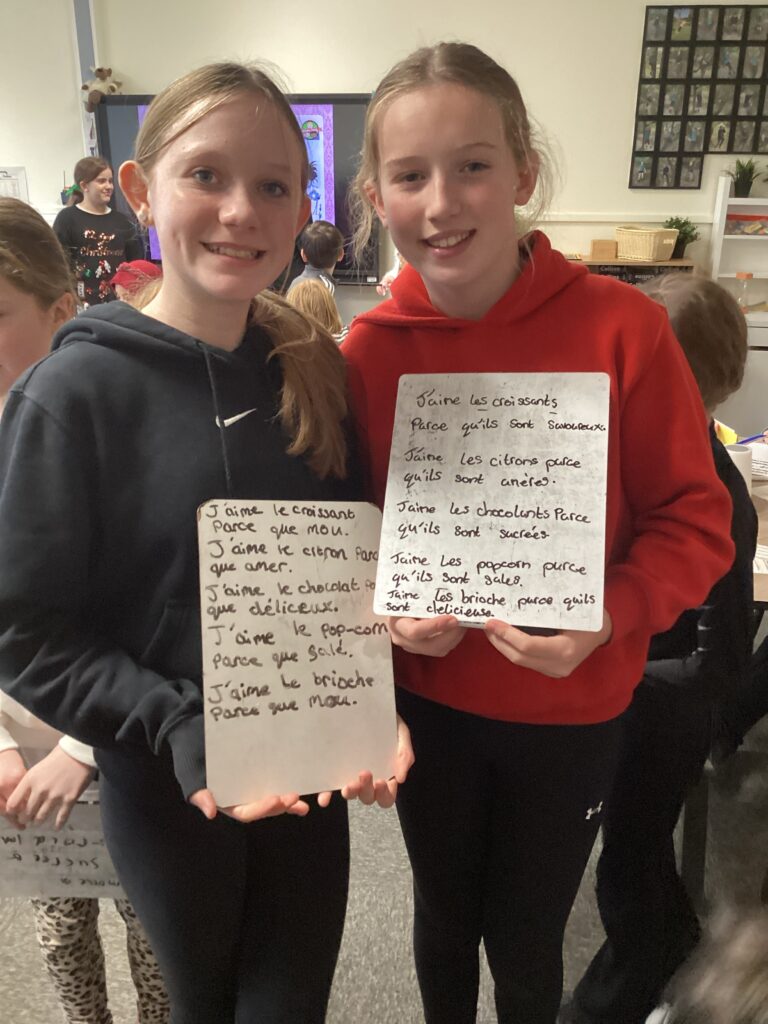 J'aime le croissant
Parce que mou.
J'aime le citron Parc
que amer.
J'aime le chocolat pa
que déliceux.
J'aime le pop-corn
Parce que salé.
J'aime le brioche
Parce que mou.
J'aime les croissants
Parce qu'ils sont savoureux.
J'aime les citrons parce
qu'ils sont amères.
J'aime les chocolants Parce
qu'ils sont sucrées.
J'aime Les popcorn parce
qu'ils sont sales.
J'aime les brioche parce quils
sont delicieuse.
Christmas